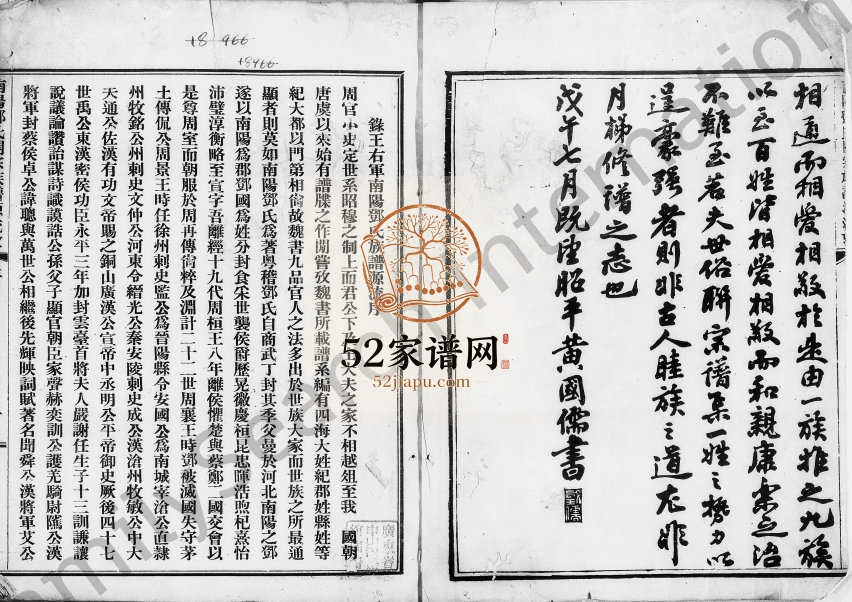 +8 966
+8966
相通而相愛相敬於是由一族推之九族
以至百姓皆相愛相敬而和親康樂之治
不難至若夫世俗聯宗譜集一姓之勢力以
逞豪強者則非古人睦族之道尤非
月梯修譜之志也
戊午七月既望昭平黃國儒書
錄王右軍南陽鄧氏族譜源流序
周官小史定世系昭穆之制上而君公下 大夫之家不相越俎至我 國朝
唐虞以來始有譜牒之作閒嘗攷魏書所載譜系編有四海大姓紀郡姓縣姓等
紀大都以門第相尚故魏書九品官人之法多出於世族大家而世族之所最通
顯者則莫如南陽鄧氏為著粵稽鄧氏自商武丁封其季父曼於河北南陽之鄧
遂以南陽為郡鄧國為姓分封食采世襲侯爵歷晃徽慶桓昆忠暉浩煦杞熹怡
沛璧淳衡略至宣字吾離經十九代周桓王八年離侯懼楚與蔡鄭二國交會以
是尊周室而朝服於周再傳倘粹及淵計二十二世周襄王時鄧被滅國失守茅
土傳侃公周景王時任徐州刺史監公為晉陽縣令安國公為南城宰滄公直隸
州牧銘公州刺史文仲公河東令縉光公秦安陵刺史成公漢滄州牧敏公中大
夫通公佐漢有功文帝賜之銅山廣漢公宣帝中丞明公平帝御史厥後四十七
世禹公東漢密侯功臣永平三年加封雲臺首將夫人嚴謝任生子十三訓謙讓
說議論讚詒謀詩識謨誥公孫父子顯官朝臣家聲赫奕訓公護羌騎尉隲公漢
將軍封蔡侯卓公諱聰與萬世公相繼後先輝映詞賦著名聞舜公漢將軍艾公
52家谱网
52jiapu.com
FamilySearch International